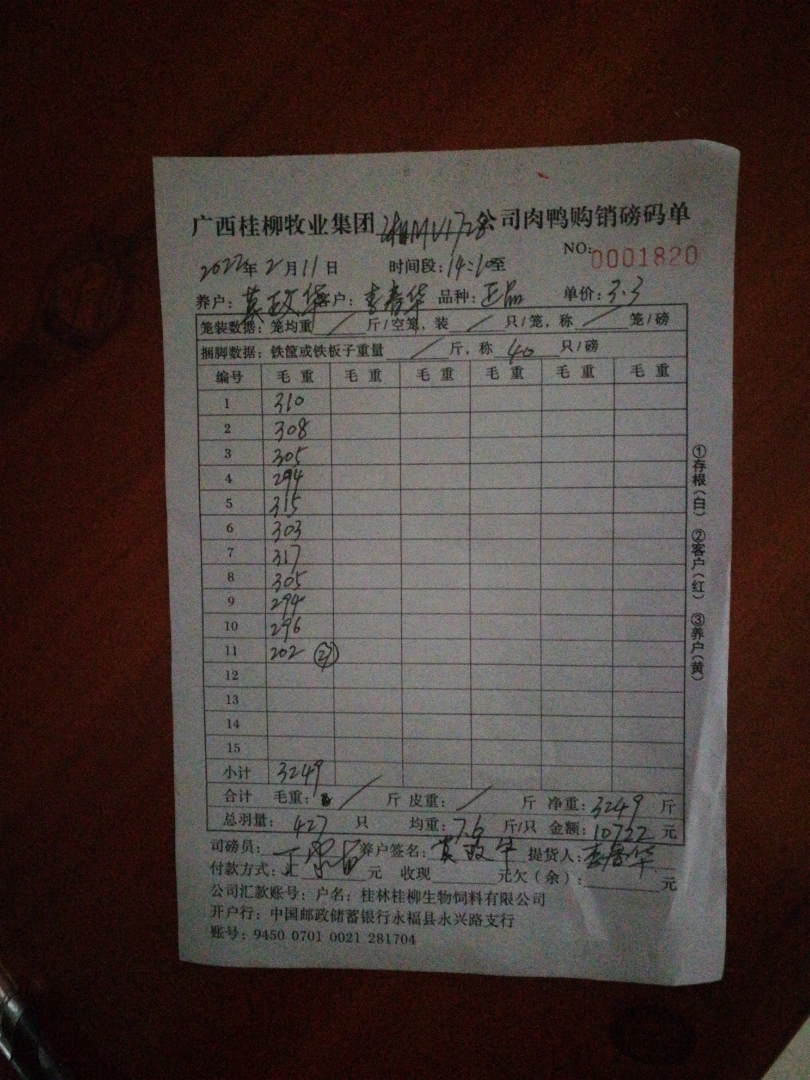 广西桂柳牧业集团 公司肉鸭购销磅码单
NO: 0001820
2022年2月11日 时间段: 14:10至
养户: 莫政华 客户: 李春华 品种: 正品 单价: 3.3
笼装数据: 笼均重 / 斤/空笼, 装 / 只/笼, 称 / 笼/磅
捆脚数据: 铁筐或铁板子重量 / 斤, 称 40 只/磅
编号 毛重 毛重 毛重 毛重 毛重 毛重
1 310
2 308
3 305
4 294
5 315
6 303
7 317
8 305
9 294
10 296
11 202 27
12
13
14
15
小计 3249
合计 毛重: / 斤 皮重: / 斤 净重: 3249 斤
总羽量: 427 只 均重: 7.6 斤/只 金额: 10722 元
司磅员: 养户签名: 莫政华 提货人: 李春华
付款方式: 元 收现 元欠(余): 元
公司汇款账号: 户名: 桂林桂柳生物饲料有限公司
开户行: 中国邮政储蓄银行永福县永兴路支行
账号: 9450 0701 0021 281704
①存根(白) ②客户(红) ③养户(黄)